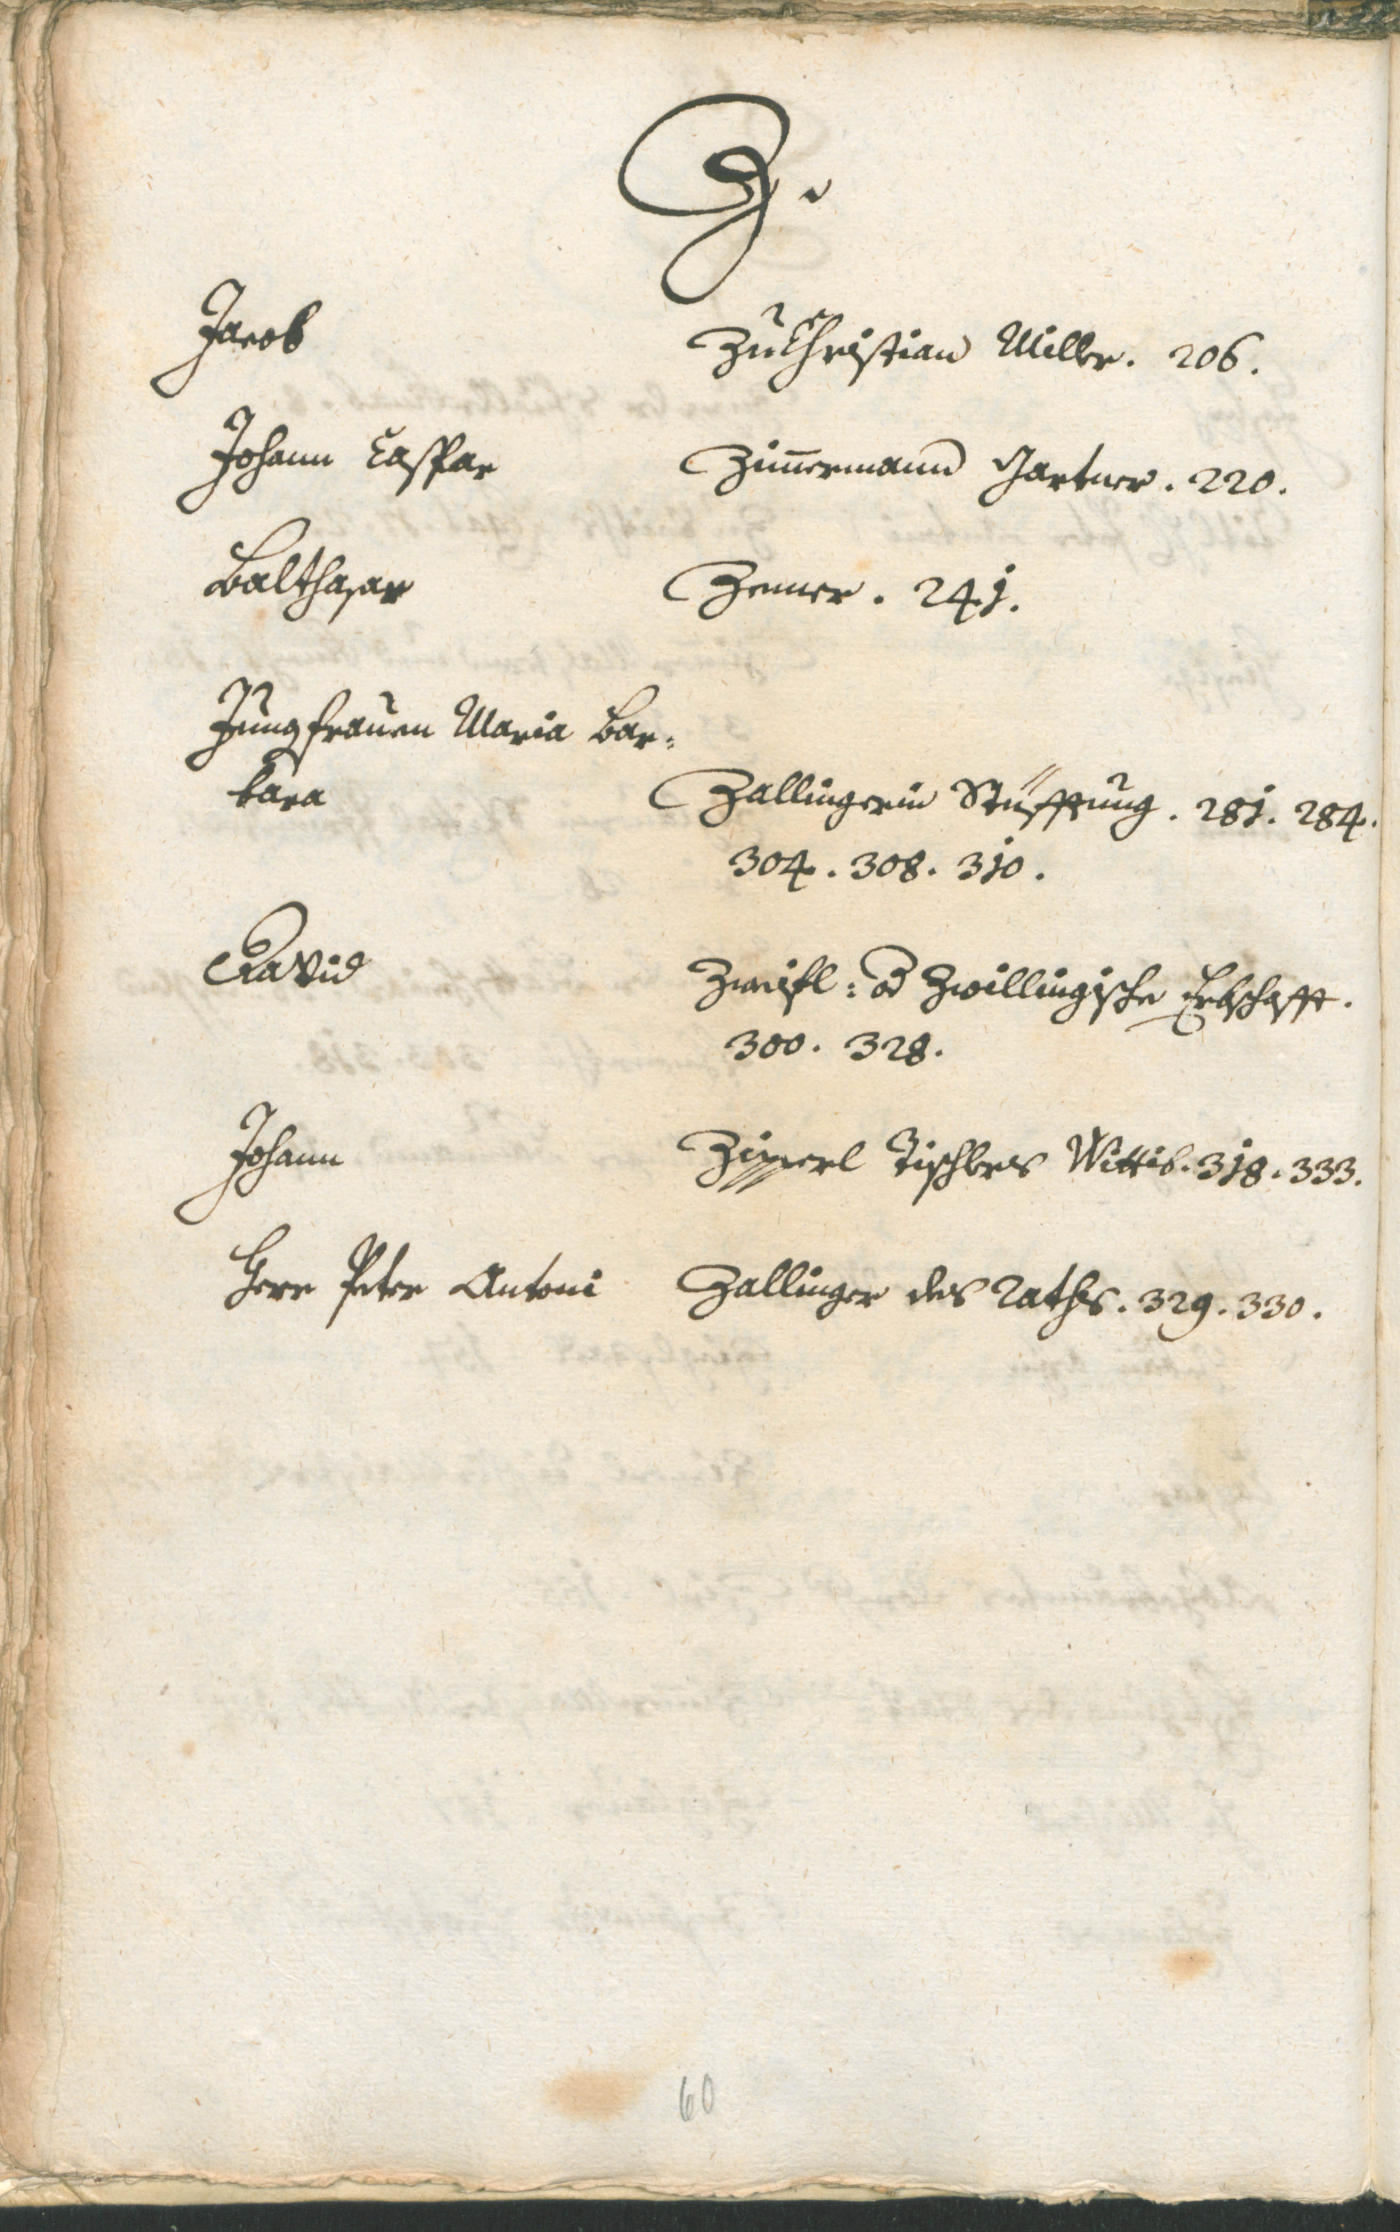 Z.
Jacob Zu Christian Miller. 206.
Johann Caspar Zim̄ermann Gartner. 220.
Balthasar Zemer. 241.
Jungfrauen Maria Bar:
bara Zallingerin Stüfftung. 281. 284.
304. 308. 310.
David Zweifl: od Zwillingische Erbschafft.
300. 328.
Johann Zipperl Tischlers Wittib. 318. 333.
Herr Peter Antoni Zallinger des Raths. 329. 330.
60